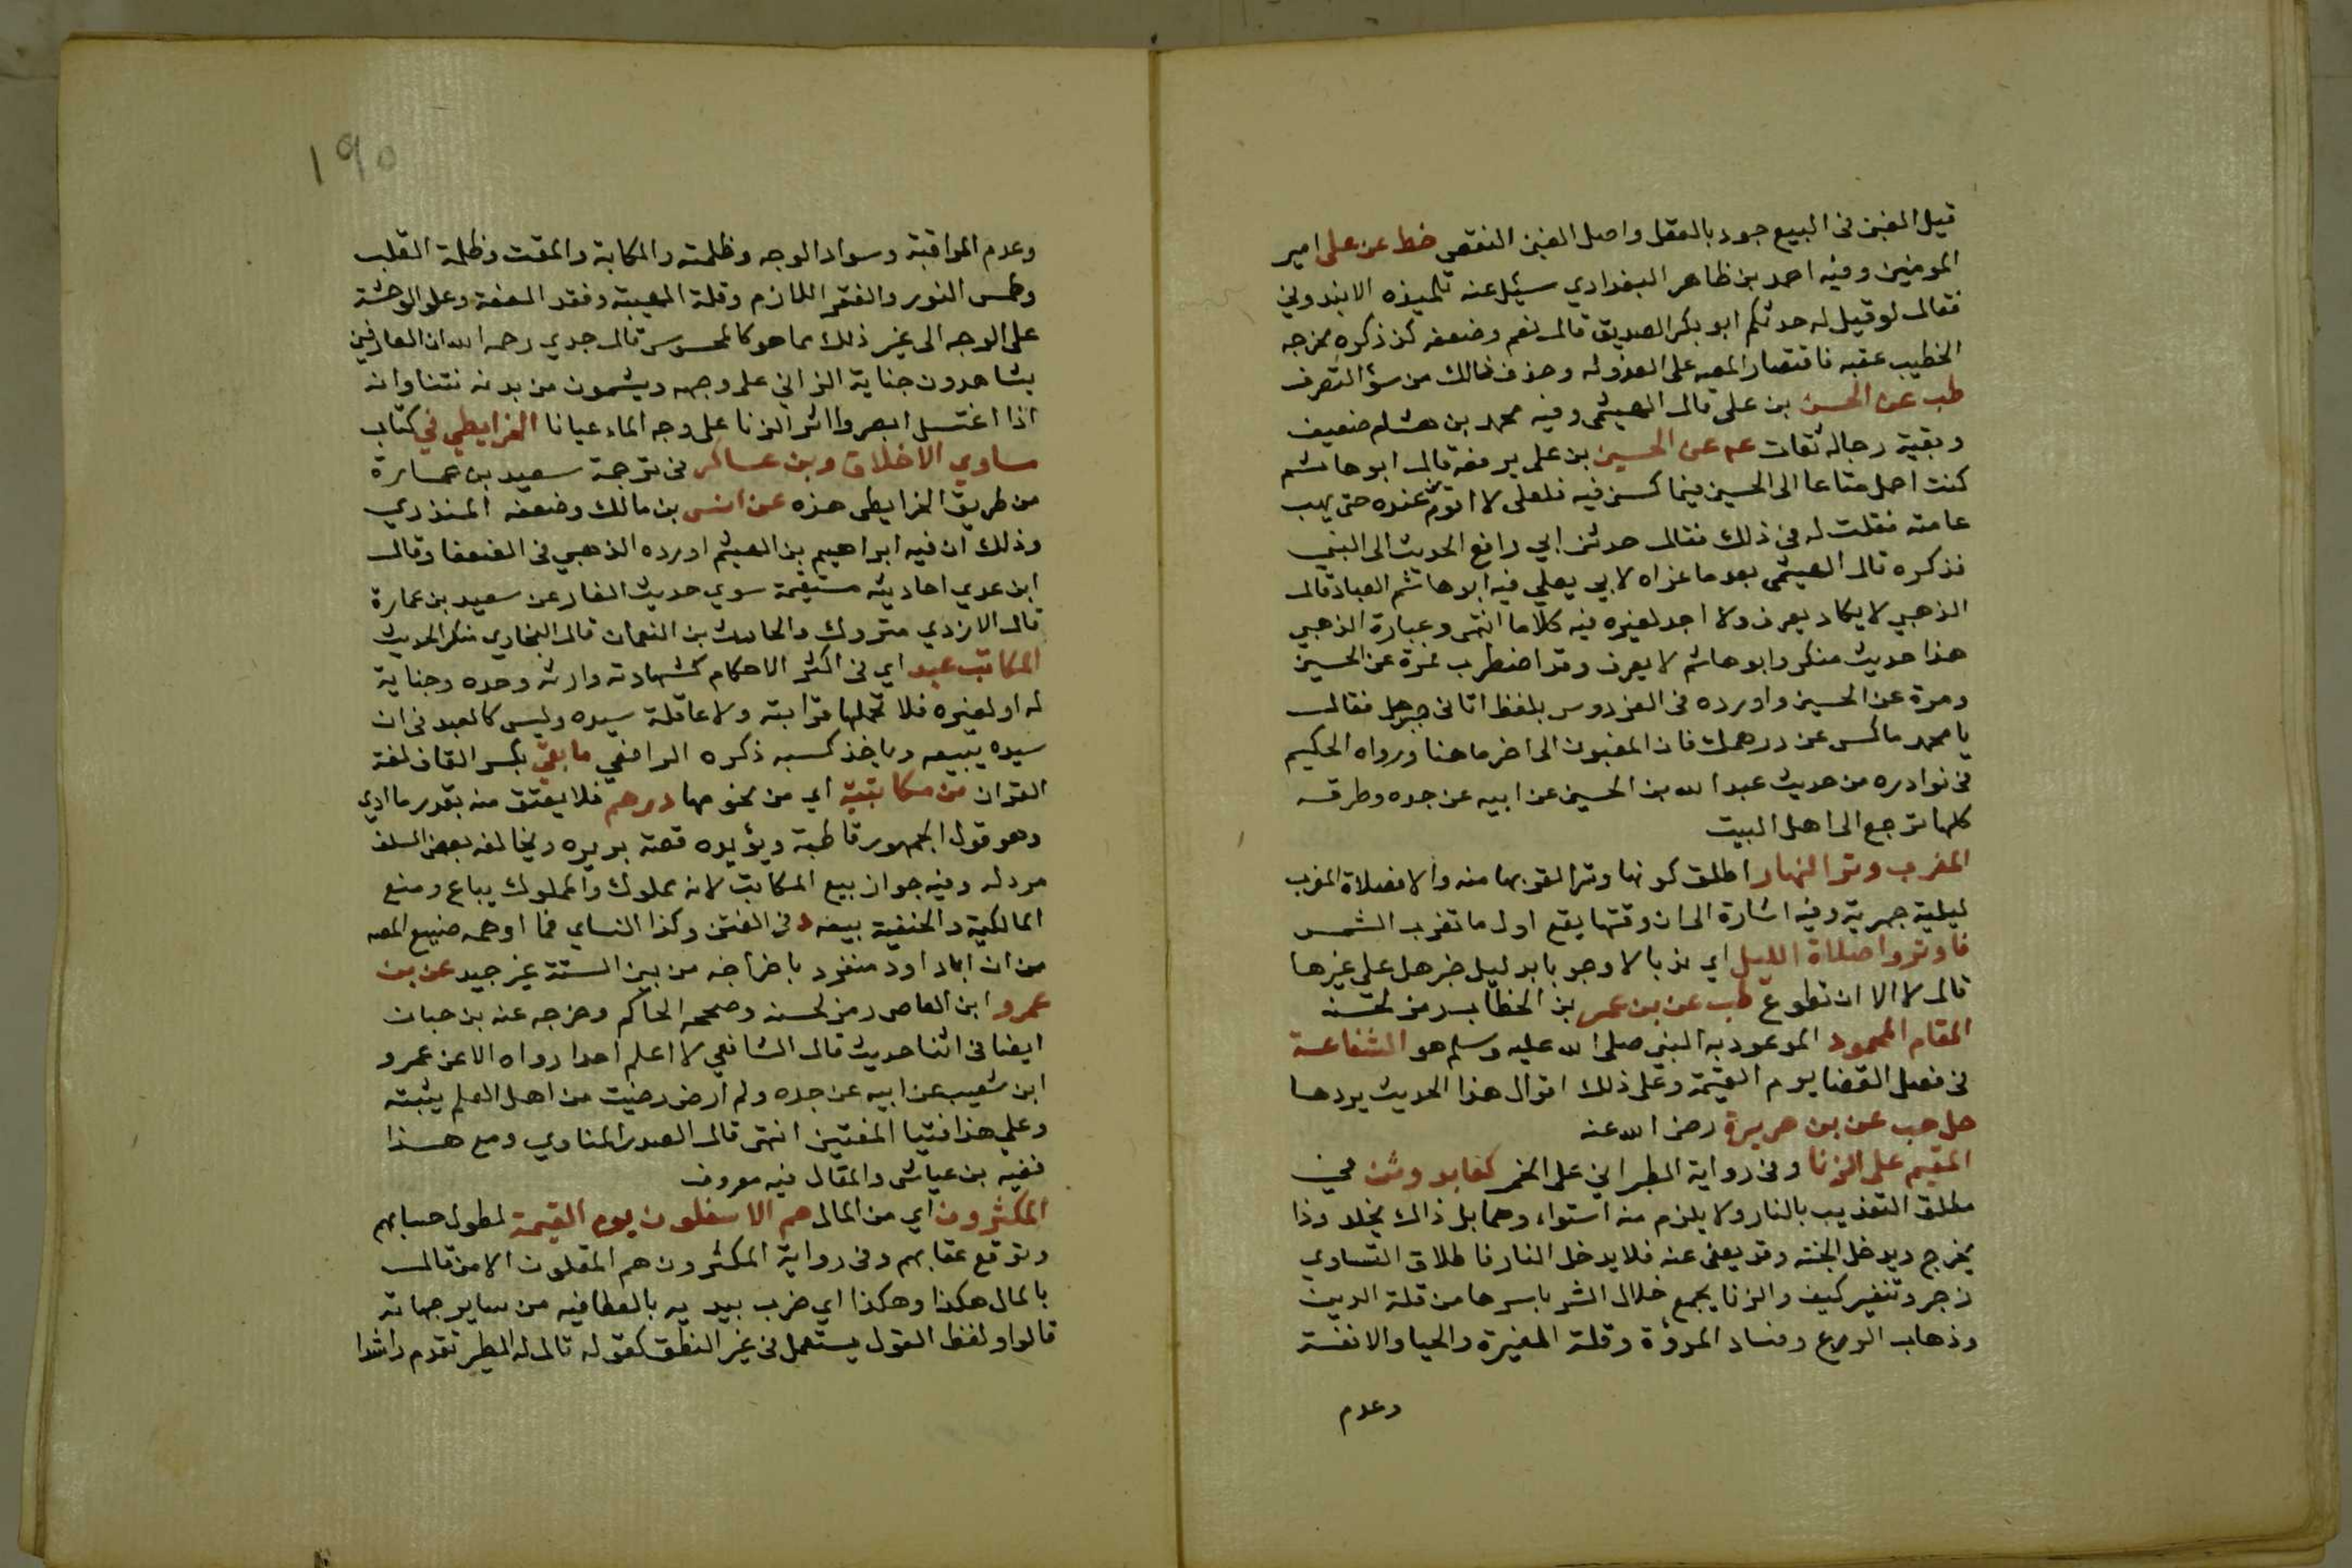 قيل الغبن فى البيع جود بالعقل واصل الغبن النقص خط عن على امير
المومنين وفيه احمد بن ظاهر البغدادي سئل عنه تلميذه الابندوني
فقال لو قيل له حدثكم ابو بكر الصديق قال نعم وضعفه كذا ذكره مخرجه
الخطيب عقبه فاقتصار المصه على العزو له وحذف ذالك من سؤ التصرف
طب عن الحسن بن على قال الهيثمى وفيه محمد بن هشام ضعيف
وبقية رجاله ثقات عم عن الحسين بن على يرفعه قال ابو هاشم
كنت احمل متاعا الى الحسين فيما كسنى فيه فلعلى لا اقوم من عنده حتى يهب
عامته فقلت له فى ذلك فقال حدثنى ابي رافع الحديث الى النبي
فذكره قال الهيثمى بعد ما عزاه لابي يعلي فيه ابو هاشم العباد قال
الذهبي لا يكاد يعرف ولا اجد لغيره فيه كلاما انتهى وعبارة الذهبي
هذا حديث منكر وابو هاشم لا يعرف وقد اضطرب فمرة عن الحسين
ومرة عن الحسين واورده فى الفردوس بلفظ اتانى جبريل فقال
يا محمد ماكس عن درهمك فان المغبون الى اخر ما هنا ورواه الحكيم
فى نوادره من حديث عبد الله بن الحسين عن ابيه عن جده وطرقه
كلها ترجع الى اهل البيت
المغرب وتر النهار اطلق كونها وتر لقربها منه والا فصلاة المغرب
ليلية جهرية وفيه اشارة الى ان وقتها يقع اول ما تغرب الشمس
فاوتروا صلاة الليل اي ندبا لا وجوبا بدليل خبر هل علي غيرها
قال لا الا ان تطوع طب عن بن عمر بن الخطاب رمز لحسنه
المقام المحمود الموعود به النبي صلى الله عليه وسلم هو الشفاعة
فى فصل القضا يوم القيمة وعلى ذلك اقوال هذا الحديث يردها
حل هب عن بن هريرة رضى الله عنه
المقيم على الزنا وفى رواية الطبراني على الخمر كعابد وثن في
مطلق التعذيب بالنار ولا يلزم منه استواءوهما بل ذاك يخلد وذا
يخرج ويدخل الجنة وقد يعفى عنه فلا يدخل النار فاطلاق التساوي
زجر وتنفير كيف والزنا يجمع خلال الشر باسرها من قلة الدين
وذهاب الورع وفساد المروءة وقلة الغيرة والحيا والانفة
وعدم
١٩٥
وعدم المراقبة وسواد الوجه وظلمته والكابة والمقت وظلمة القلب
وطمس النور والفقر اللازم وقلة الهيبة وفقد العفة وعلو الوحشة
على الوجه الى غير ذلك مما هو كالمحسوس قال جدي رحمه الله ان العارفين
يشاهدون جناية الزاني على وجهه ويشمون من بدنه نتنا وانه
اذا اغتسل ابصروا اثر الزنا على وجه الماء عيانا الخرايطي في كتاب
مساوي الاخلاق وبن عساكر فى ترجمة سعيد بن عمارة
من طريق الخرايطى هذه عن انس بن مالك وضعفه المنذري
وذلك ان فيه ابراهيم بن الهيثم اورده الذهبي فى الضعفا وقال
ابن عدي احاديثه مستقيمة سوي حديث الغار عن سعيد بن عمارة
قال الازدي متروك والحارث بن النعمان قال البخاري منكر الحديث
المكاتب عبد اي فى اكثر الاحكام كشهادته وارثه وحده وجناية
له او لغيره فلا تحملها قرابته ولا عاقلة سيده وليس كالعبد فى ان
سيده يبيعه وياخذ كسبه ذكره الرافعي ما بقي بكسر القاف لغة
القران من مكاتبته اي من نجومها درهم فلا يعتق منه بقدر ما ادي
وهو قول الجمهور قاطبة ويؤيده قصة بريره ويخالفه بعض السلف
مردله وفيه جواز بيع المكاتب لانه مملوك والمملوك يباع ومنع
المالكية والحنفية بيعه د فى العتق وكذا النساي فما اوهمه صنيع المصه
من ان ابا داود منفرد باخراجه من بين الستة غير جيد عن بن
عمرو ابن العاص رمز لحسنه وصححه الحاكم وخرجه عنه بن حبان
ايضا فى اثنا حديث قال الشافعي لا اعلم احدا رواه الا عن عمرو
ابن شعيب عن ابيه عن جده ولم ارض رضيت من اهل العلم يثبته
وعلي هذا فتيا المفتين انتهى قال الصدر المناوي ومع هذا
ففيه بن عياش والمقال فيه معروف
المكثرون اي من المال هم الاسفلون يوم القيمة لطول حسابهم
وتوقع عقابهم وفى رواية المكثرون هم المقلون الا من قال
بالمال هكذا وهكذا اي ضرب بيديه بالعطا فيه من ساير جهاته
قالوا ولفظ القول يستعمل فى غير النطق كقوله قال له الطير تقدم راشدا